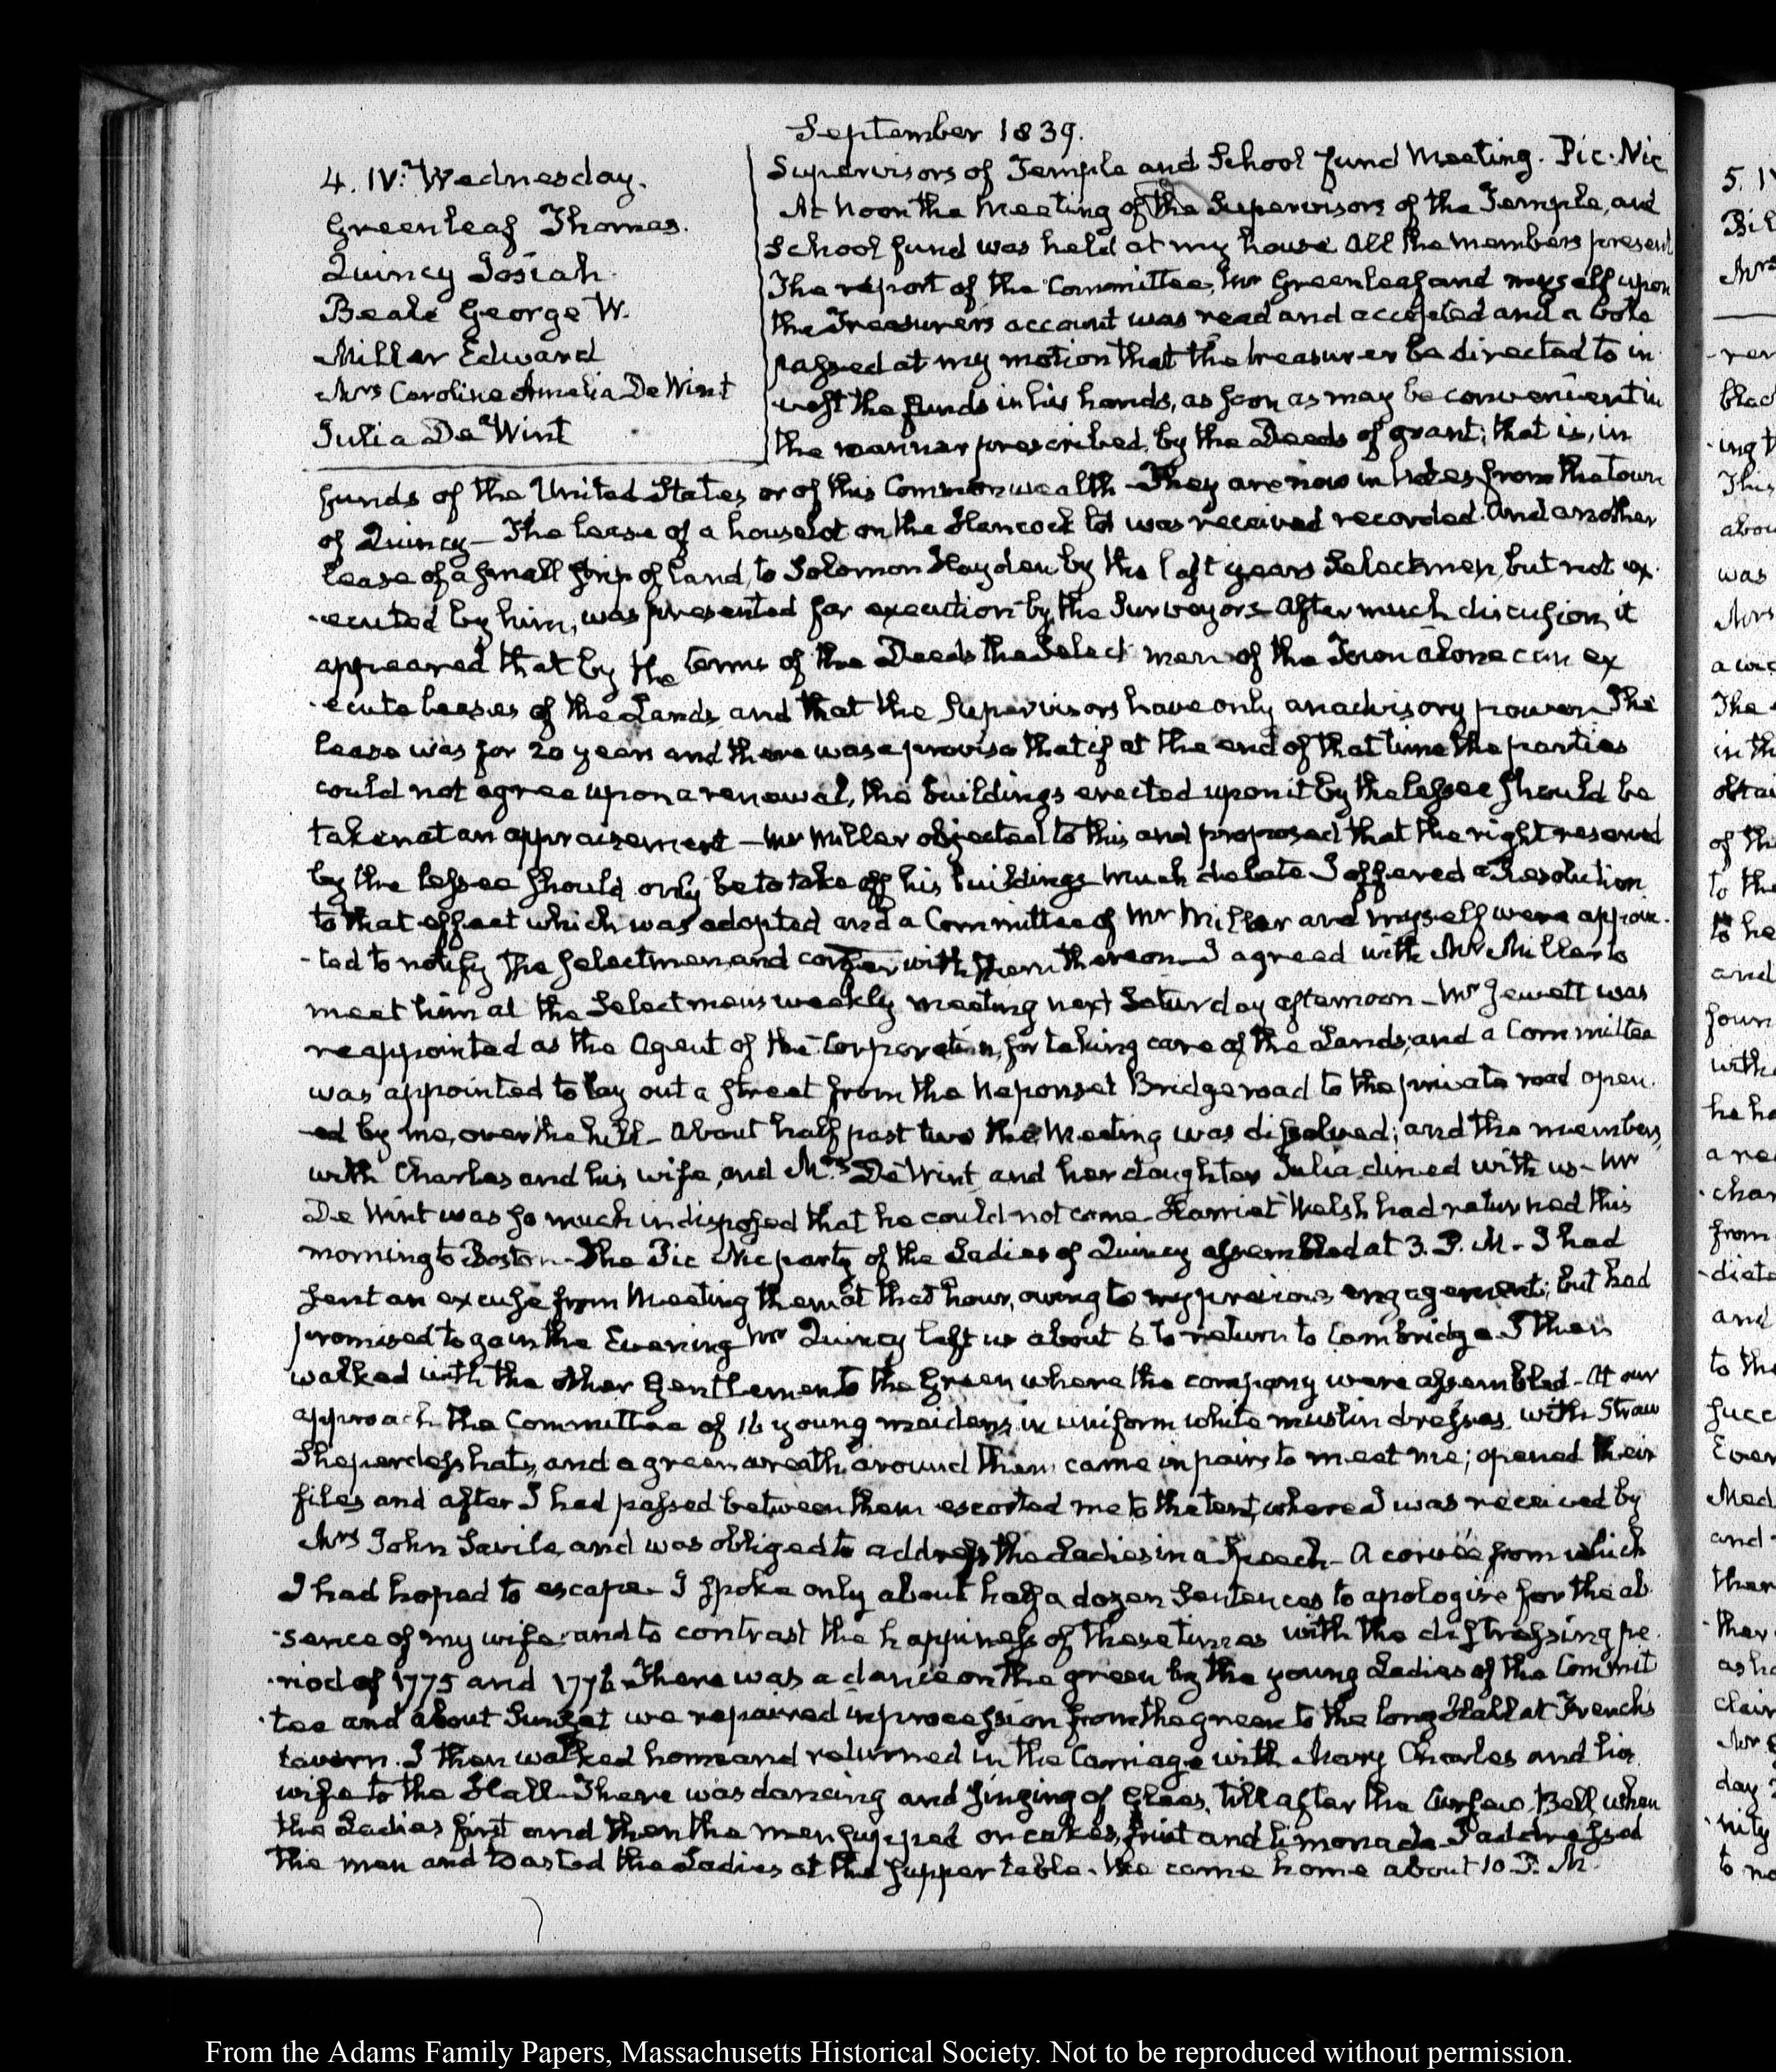 September 1839.
4. IV. Wednesday.
Greenleaf Thomas.
Quincy Josiah.
Beale George W.
Miller Edward
Mrs Caroline Amelia De Wint
Julia De Wint
Supervisors of Temple and School fund Meeting. Pic-Nic
At Noon the Meeting of the Supervisors of the Temple, and
School fund was held at my house All the members present
The report of the Committee, Mr Greenleaf and myself upon
the Treasurers account was read and accepted and a vote
passed at my motion that the treasurer be directed to in
vest the funds in his hands, as soon as may be convenient in
the manner prescribed by the Deeds of grant; that is, in
funds of the United States, or of this Commonwealth - They are now in notes from the town
of Quincy - The lease of a house lot on the Hancock lot was received recorded. And another
lease of a small strip of land, to Solomon Hayden by the last years Selectmen, but not ex-
-ecuted by him, was presented for execution by the Surveyors - After much discussion, it
appeared that by the terms of the Deeds the Select men of the Town alone can ex
-ecute leases of the Lands and that the Supervisors have only an advisory power - The
lease was for 20 years and there was a proviso that if at the end of that time the parties
could not agree upon a renewal, the buildings erected upon it by the lessee should be
taken at an appraizement - Mr Miller objected to this and proposed that the right reserved
by the lessee should only be to take off his buildings - Much debate - I offered a Resolution
to that effect which was adopted and a Committee of Mr Miller and myself were appoin-
-ted to notify the Selectmen, and confer with them thereon - I agreed with Mr Miller to
meet him at the Selectmens weekly meeting next Saturday afternoon - Mr Jewett was
reappointed as the Agent of the Corporation, for taking care of the Lands; and a Committee
was appointed to lay out a street from the Neponset Bridge road to the private road open-
-ed by me, over the hill - About half past two the Meeting was dissolved; and the members,
with Charles and his wife, and Mrs De Wint and her daughter Julia dined with us - Mr
De Wint was so much indisposed that he could not come - Harriet Welsh had returned this
morning to Boston - The Pic Nic party of the Ladies of Quincy assembled at 3. P. M. - I had
sent an excuse from Meeting them at that hour, owing to my previous engagement; but had
promised to go in the Evening Mr Quincy left us about 6 to return to Cambridge. I then
walked with the other Gentlemen to the Green where the company were assembled - At our
approach the Committee of 16 young maidens, in uniform white muslin dresses, with Straw
Sheperdess hats, and a green wreath around them came in pairs to meet me; opened their
files and after I had passed between them escorted me to the tent, where I was received by
Mrs John Savile, and was obliged to address the Ladies in a Speech - A corvée from which
I had hoped to escape - I spoke only about half a dozen Sentences to apologise for the ab-
-sence of my wife: and to contrast the happiness of these times with the distressing pe-
-riod of 1775 and 1776 - There was a dance on the green by the young Ladies of the Commit
-tee and about Sunset we repaired in procession from the green to the long Hall at French's
tavern. I then walked home and returned in the Carriage with Mary Charles and his
wife to the Hall - There was dancing and singing of Glees, till after the Curfew Bell, when
the Ladies first and then the men supped on cakes, fruit and limonade - I addressed
the men and toasted the Ladies at the supper table. We came home about 10 P. M.
5. IV
From the Adams Family Papers, Massachusetts Historical Society. Not to be reproduced without permission.